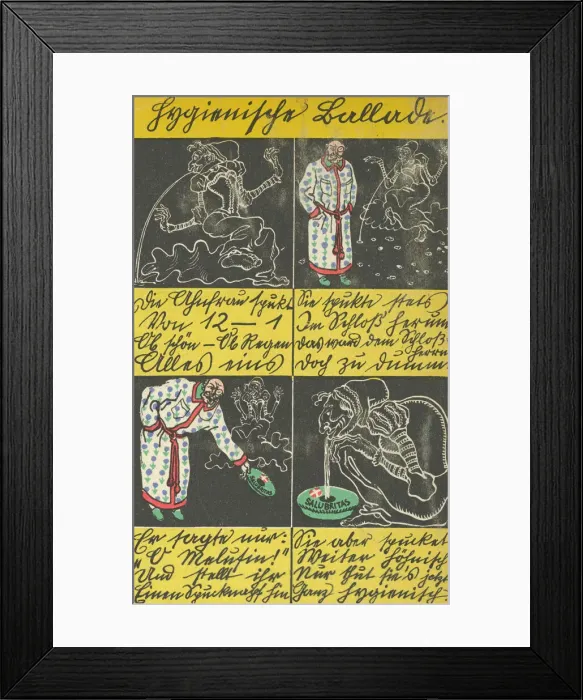 Hygienische Ballade.
Die Ahnfrau spukt
Von 12 – 1
Ob schön – Ob Regen
Alles eins
Sie spukte stets
Im Schloß herum
Das ward dem Schloß-
herrn
Doch zu dumm
Er sagte nur:
"O Melusin!"
Und stellt ihr
Einen Spucknapf hin
SALUBRITAS
Sie aber spucket
Weiter höhnisch
Nur tut sie's jetzt
Ganz hygienisch.